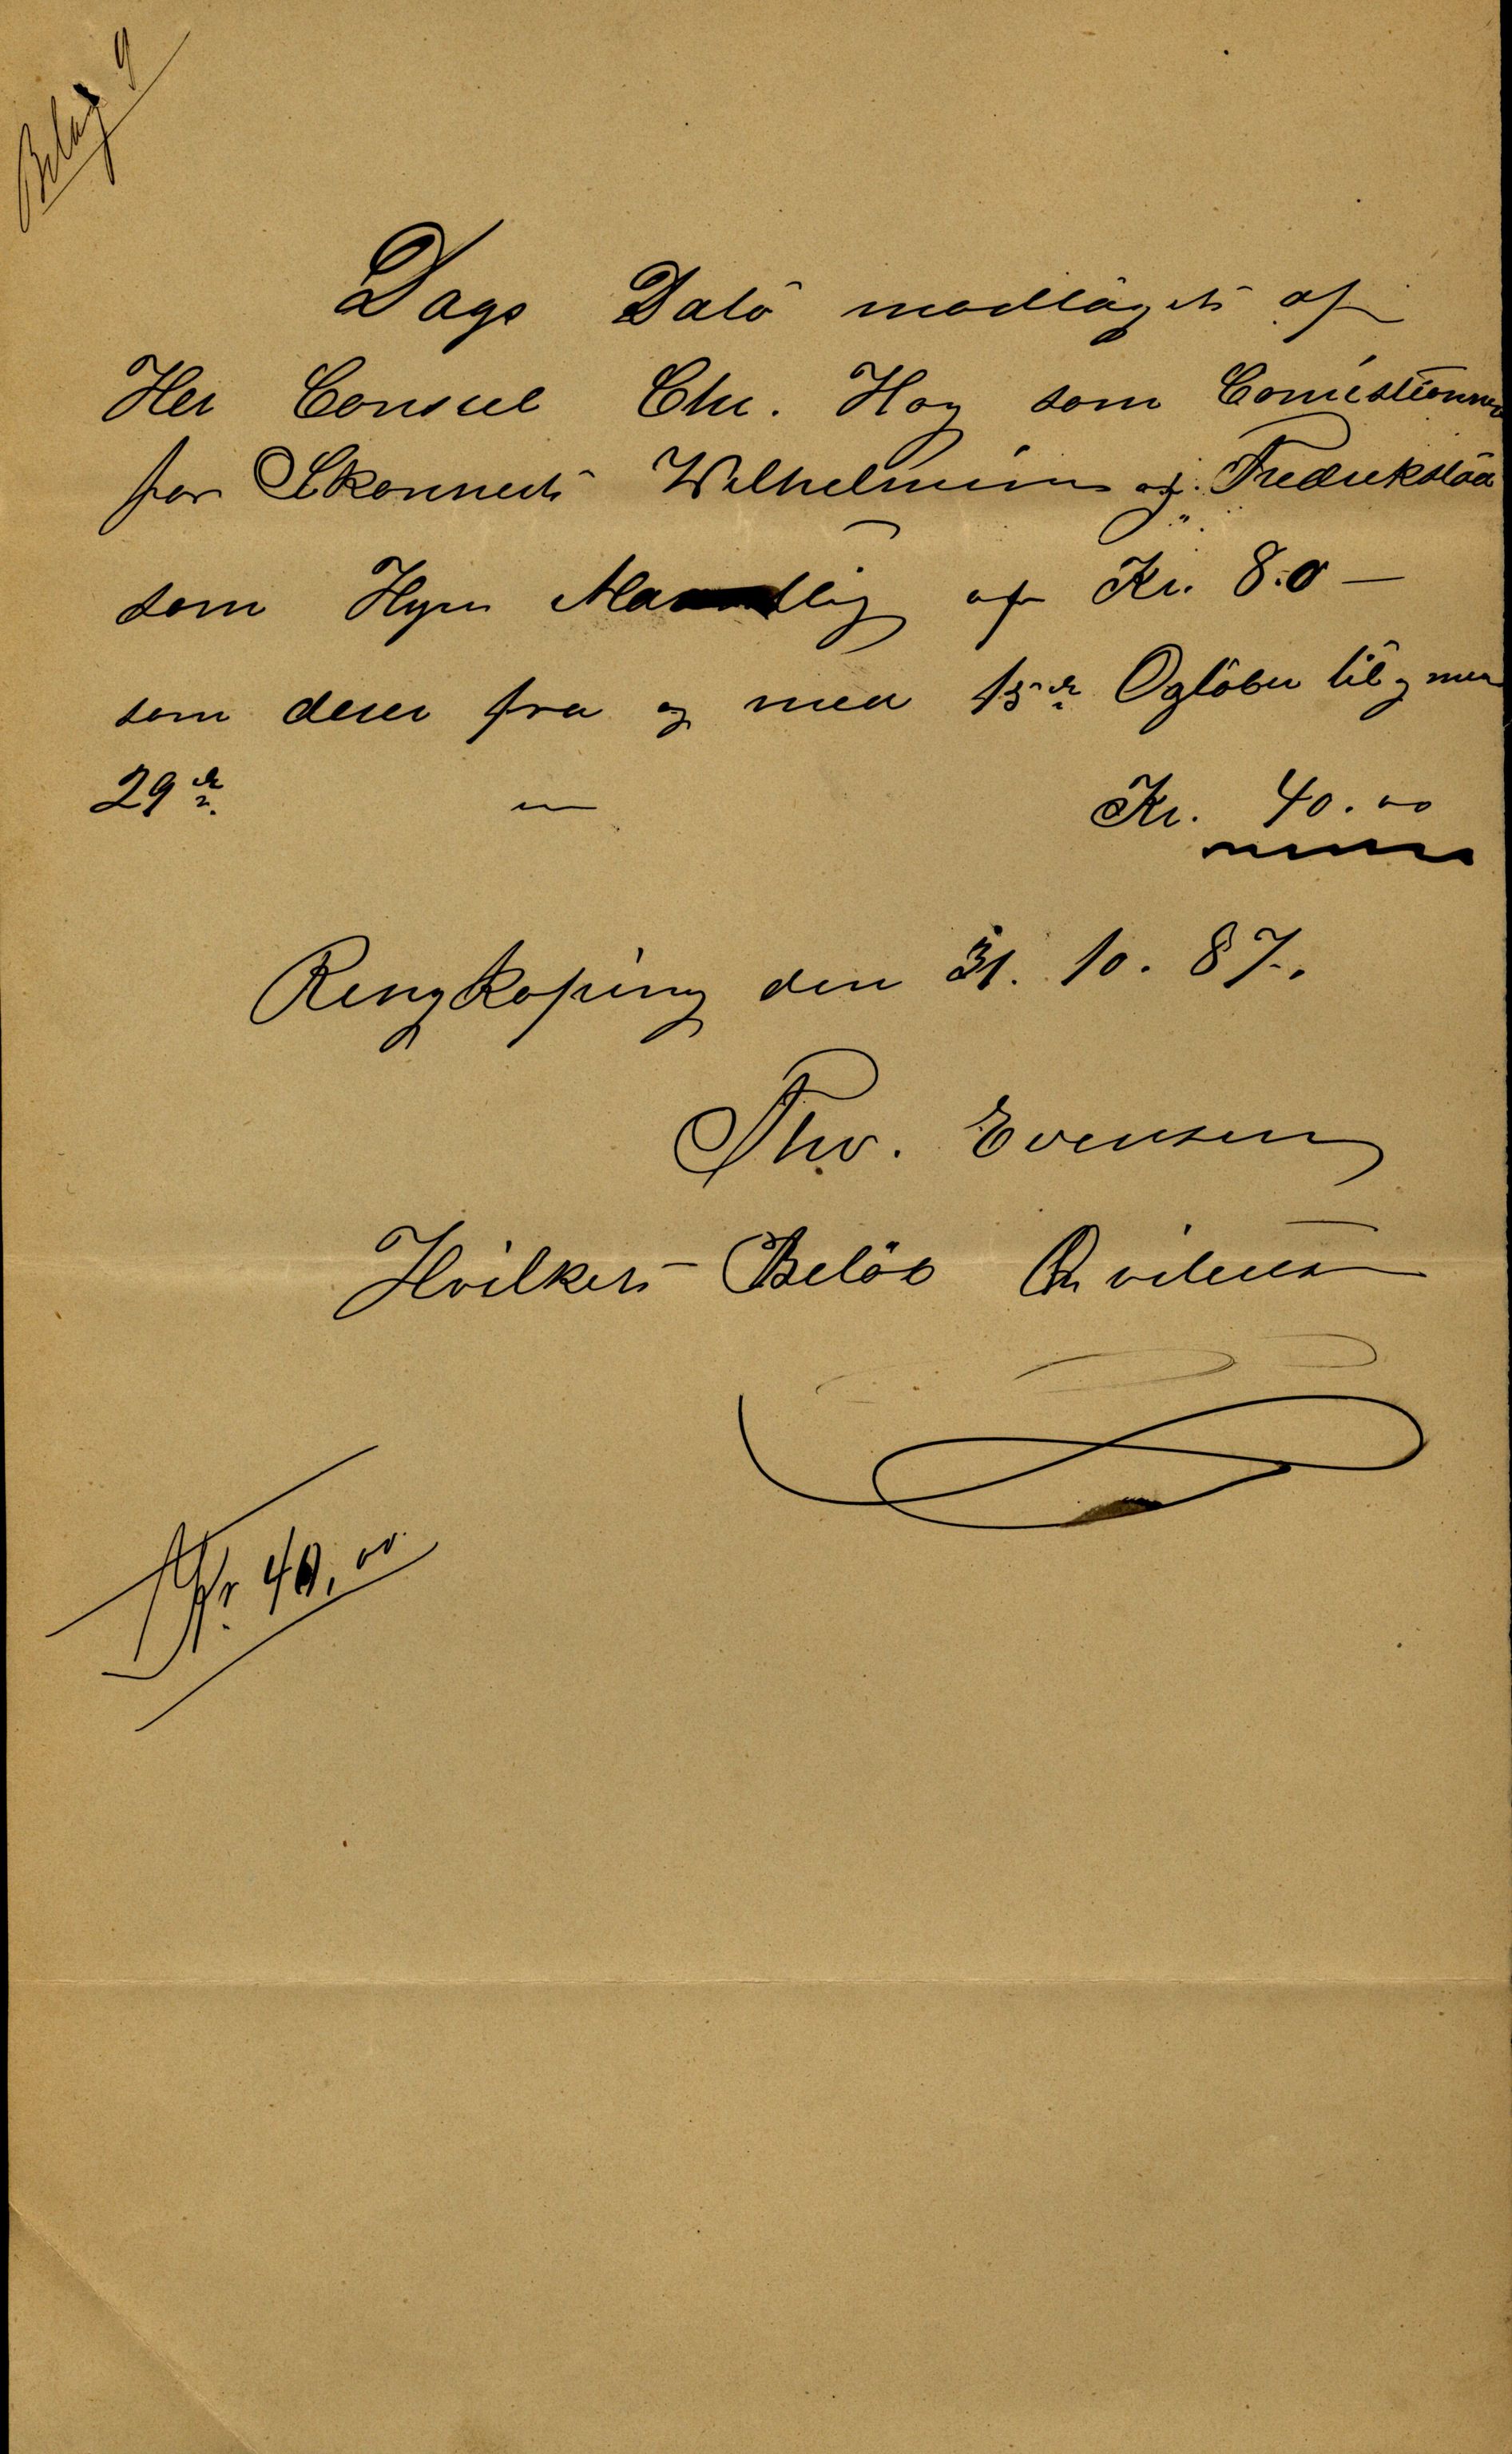 Bilag 9
Dags Dato modtaget af
Her Consul Chr. Hoy som Comistionær
for Skonnert Wilhelmine af Fredrikstad
som Hyre Maanedlig af Kr. 80 —
som deser fra og med 15de Ogtober til og med
29de — Kr. 40.00
Ringkøping den 31. 10. 87.
Thv. Evensen
Hvilket Beløb Qviteres
Kr. 40,00